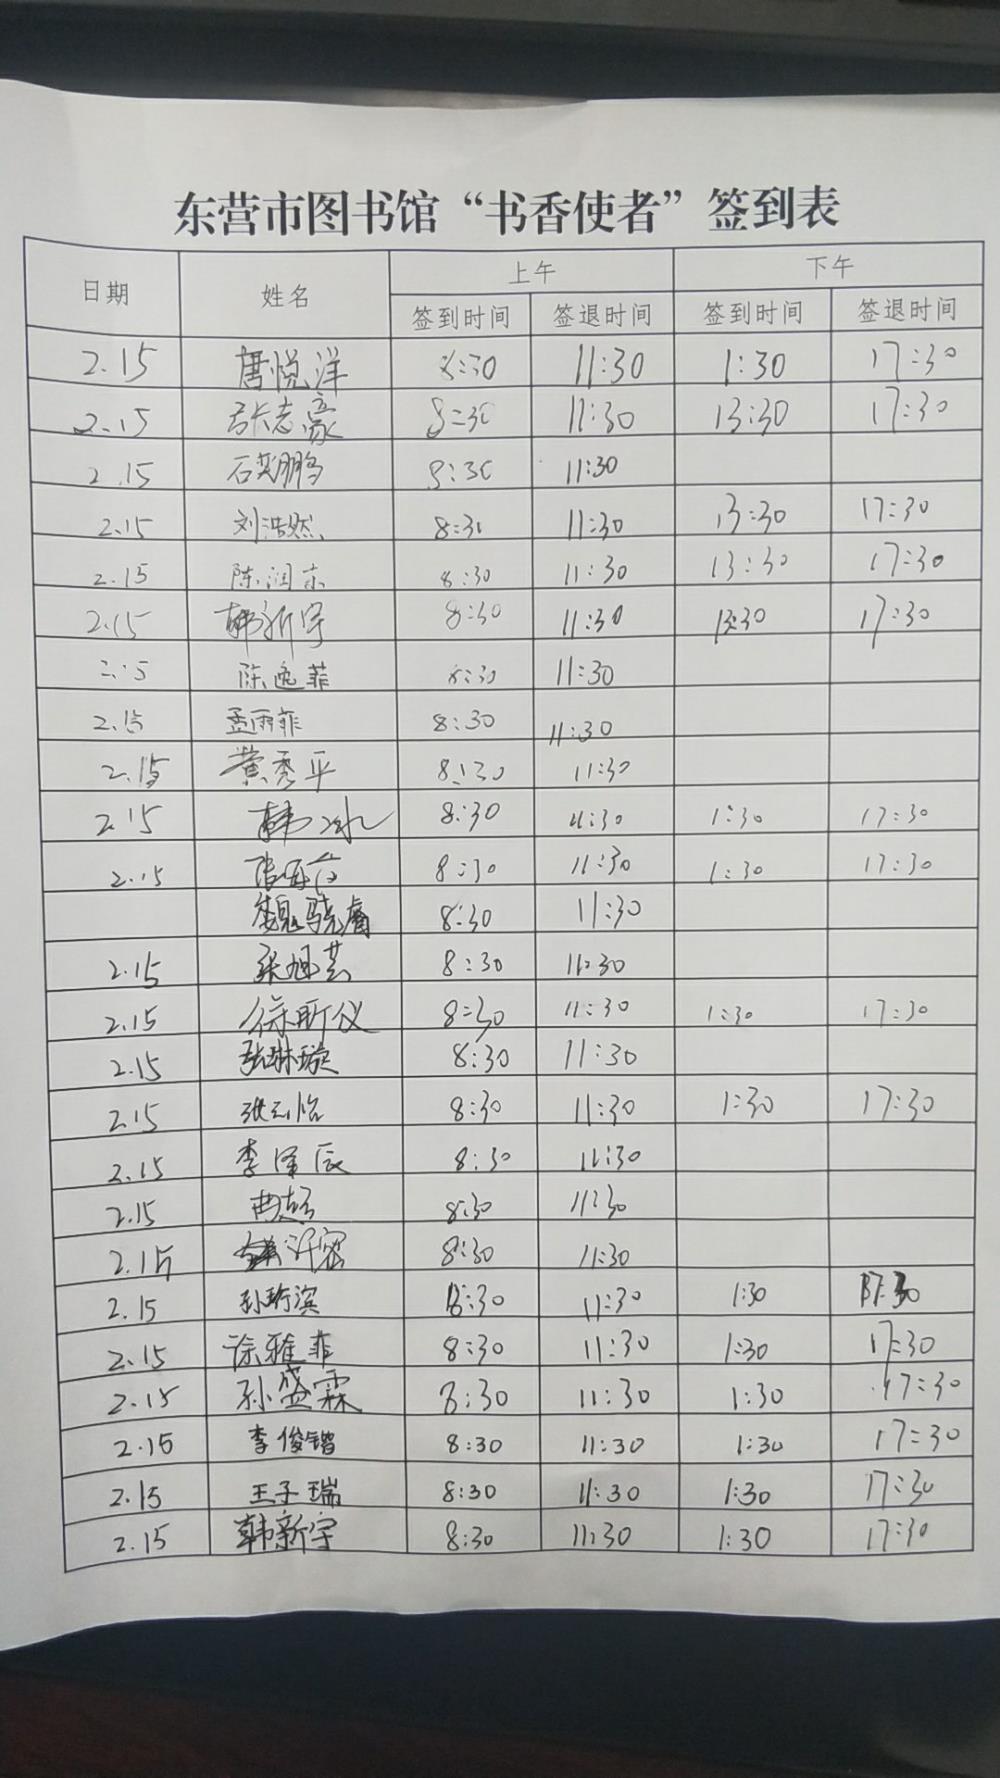 东营市图书馆“书香使者”签到表
日期 姓名 上午 下午
签到时间 签退时间 签到时间 签退时间
2.15 唐悦洋 8:30 11:30 1:30 17:30
2.15 张志豪 8:30 11:30 13:30 17:30
2.15 石奕鹏 8:30 11:30
2.15 刘浩然 8:30 11:30 13:30 17:30
2.15 陈润东 8:30 11:30 13:30 17:30
2.15 韩新宇 8:30 11:30 13:30 17:30
2.15 陈逸菲 8:30 11:30
2.15 孟雨菲 8:30 11:30
2.15 黄秀平 8:30 11:30
2.15 韩冰 8:30 11:30 1:30 17:30
2.15 8:30 11:30 1:30 17:30
魏骁睿 8:30 11:30
2.15 张旭芸 8:30 11:30
2.15 徐昕仪 8:30 11:30 1:30 17:30
2.15 张琳璇 8:30 11:30
2.15 8:30 11:30 1:30 17:30
2.15 李泽辰 8:30 11:30
2.15 8:30 11:30
2.15 8:30 11:30
2.15 孙珩滨 8:30 11:30 1:30 17:30
2.15 涂雅菲 8:30 11:30 1:30 17:30
2.15 孙盛霖 8:30 11:30 1:30 17:30
2.15 李俊锴 8:30 11:30 1:30 17:30
2.15 王子瑞 8:30 11:30 1:30 17:30
2.15 韩新宇 8:30 11:30 1:30 17:30